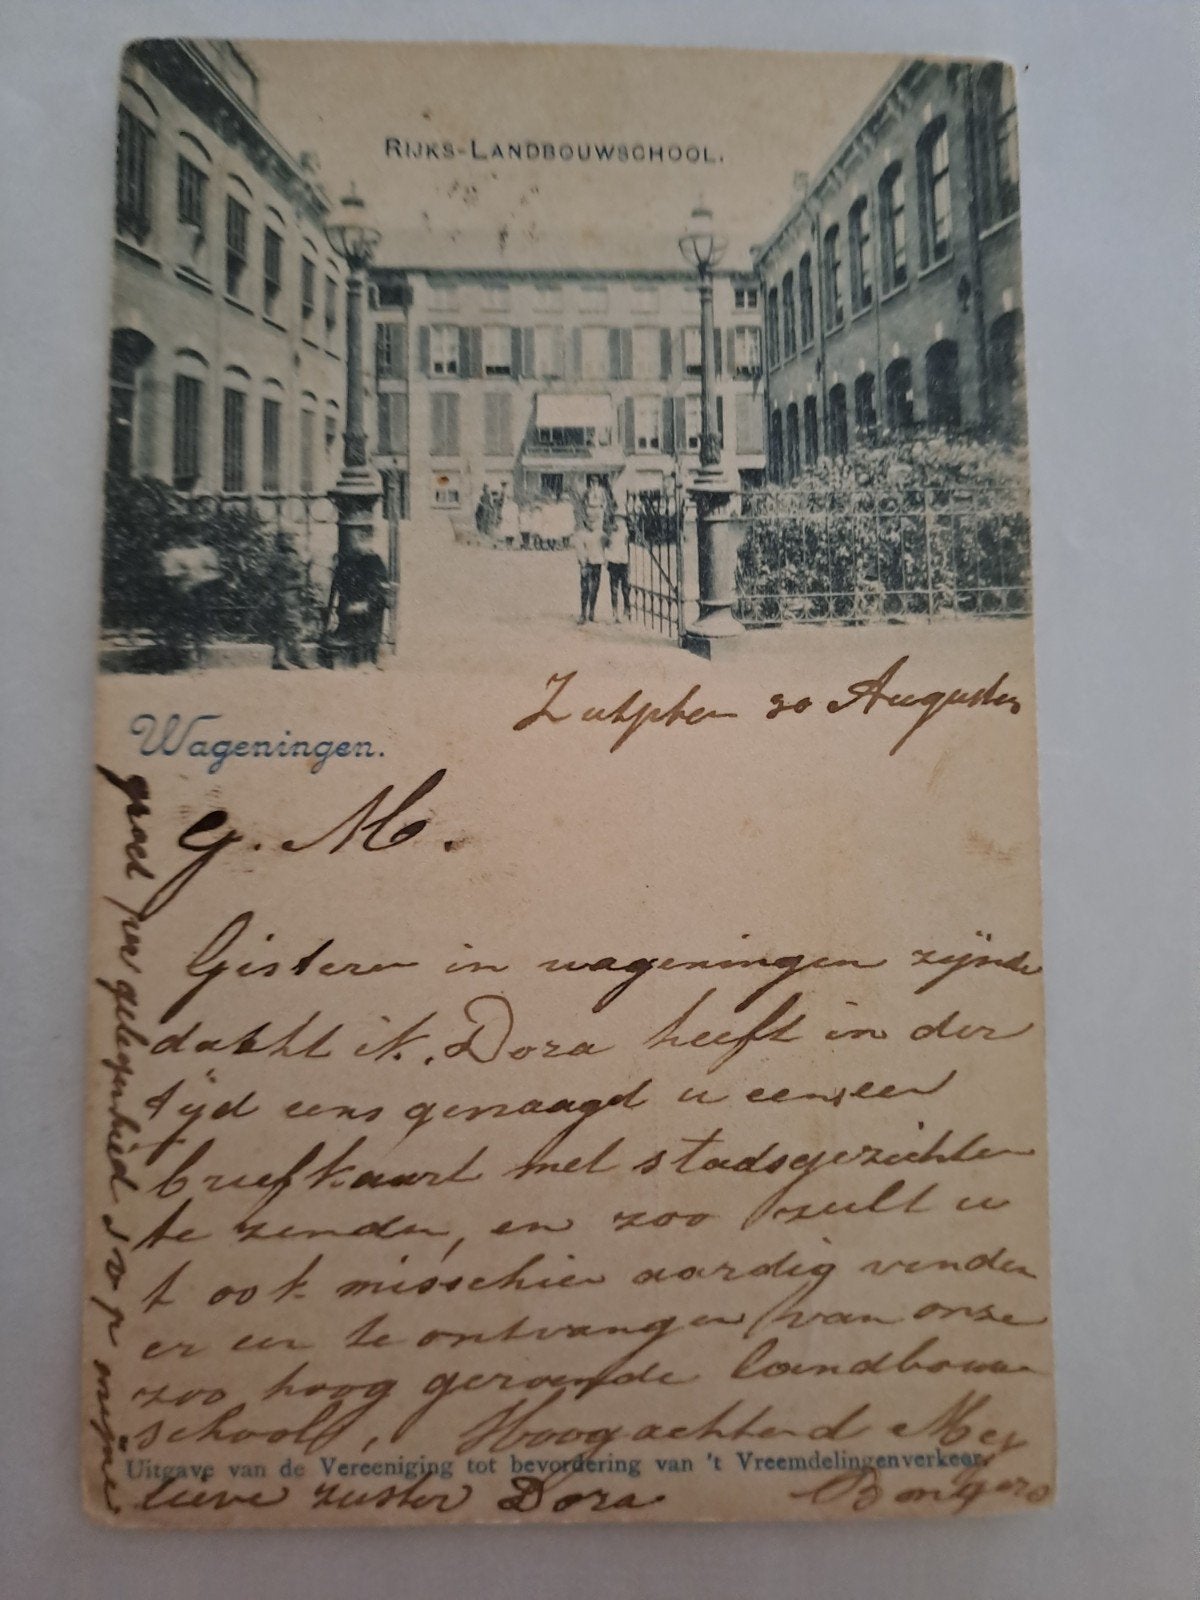 RIJKS-LANDBOUWSCHOOL.
Wageningen.
Zutphen 30 Augustus
G. M.
Gisteren in wageningen zijnde
dacht ik, Dora heeft in der
tijd eens gevraagd u eens een
briefkaart met stadsgezichten
te zenden, en zoo zult u
t ook misschien aardig vinden
er een te ontvangen van onze
zoo hoog geroemde landbouw
school, Hoogachtend Mej
Bongers
Uitgave van de Vereeniging tot bevordering van 't Vreemdelingenverkeer.
groet per gelegenheid s v p mijne
lieve zuster Dora